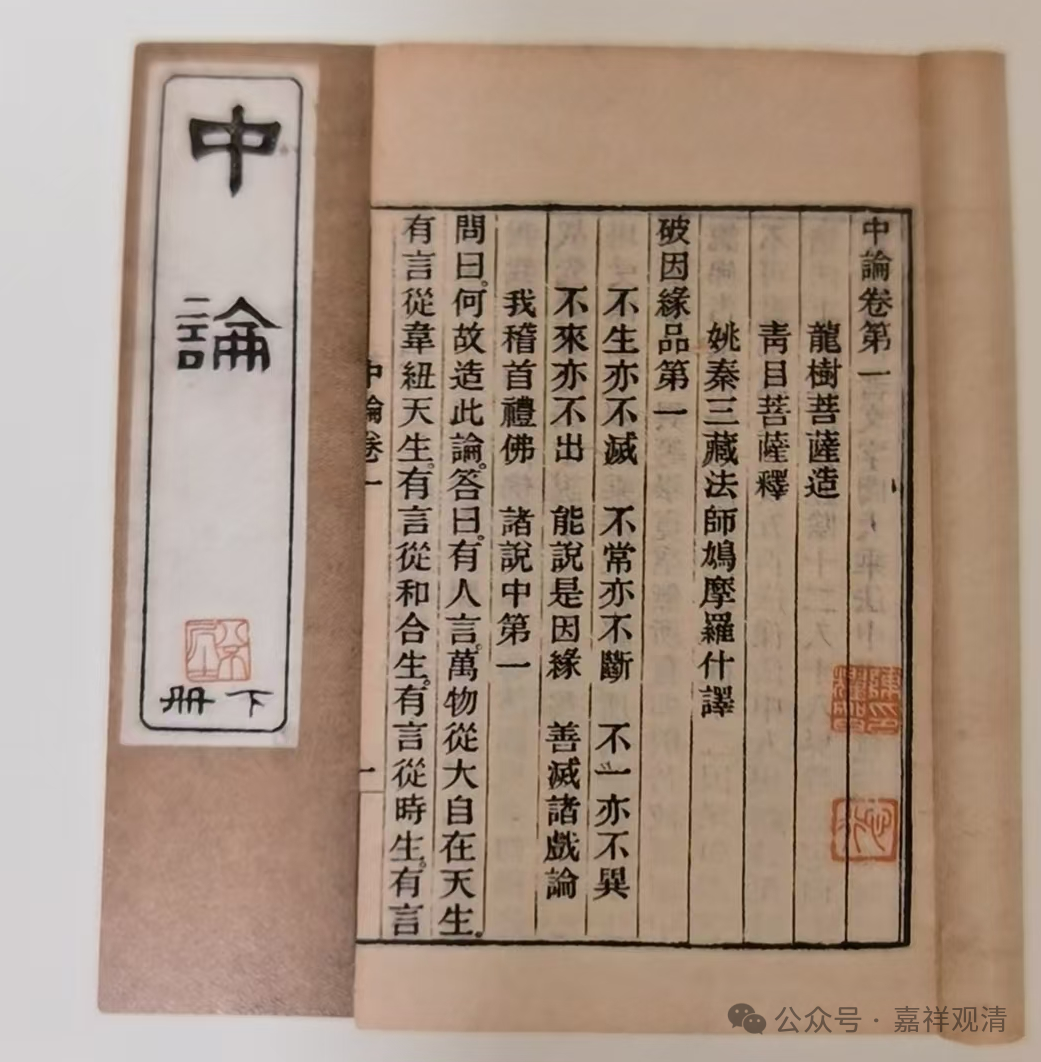 中論卷第一
龍樹菩薩造
青目菩薩釋
姚秦三藏法師鳩摩羅什譯
破因緣品第一
不生亦不滅 不常亦不斷 不一亦不異
不來亦不出 能說是因緣 善滅諸戲論
我稽首禮佛 諸說中第一
問曰。何故造此論。答曰。有人言。萬物從大自在天生。
有言從韋紐天生。有言從和合生。有言從時生。有言
中論卷一
一
中論
下冊
公众号 · 嘉祥观清